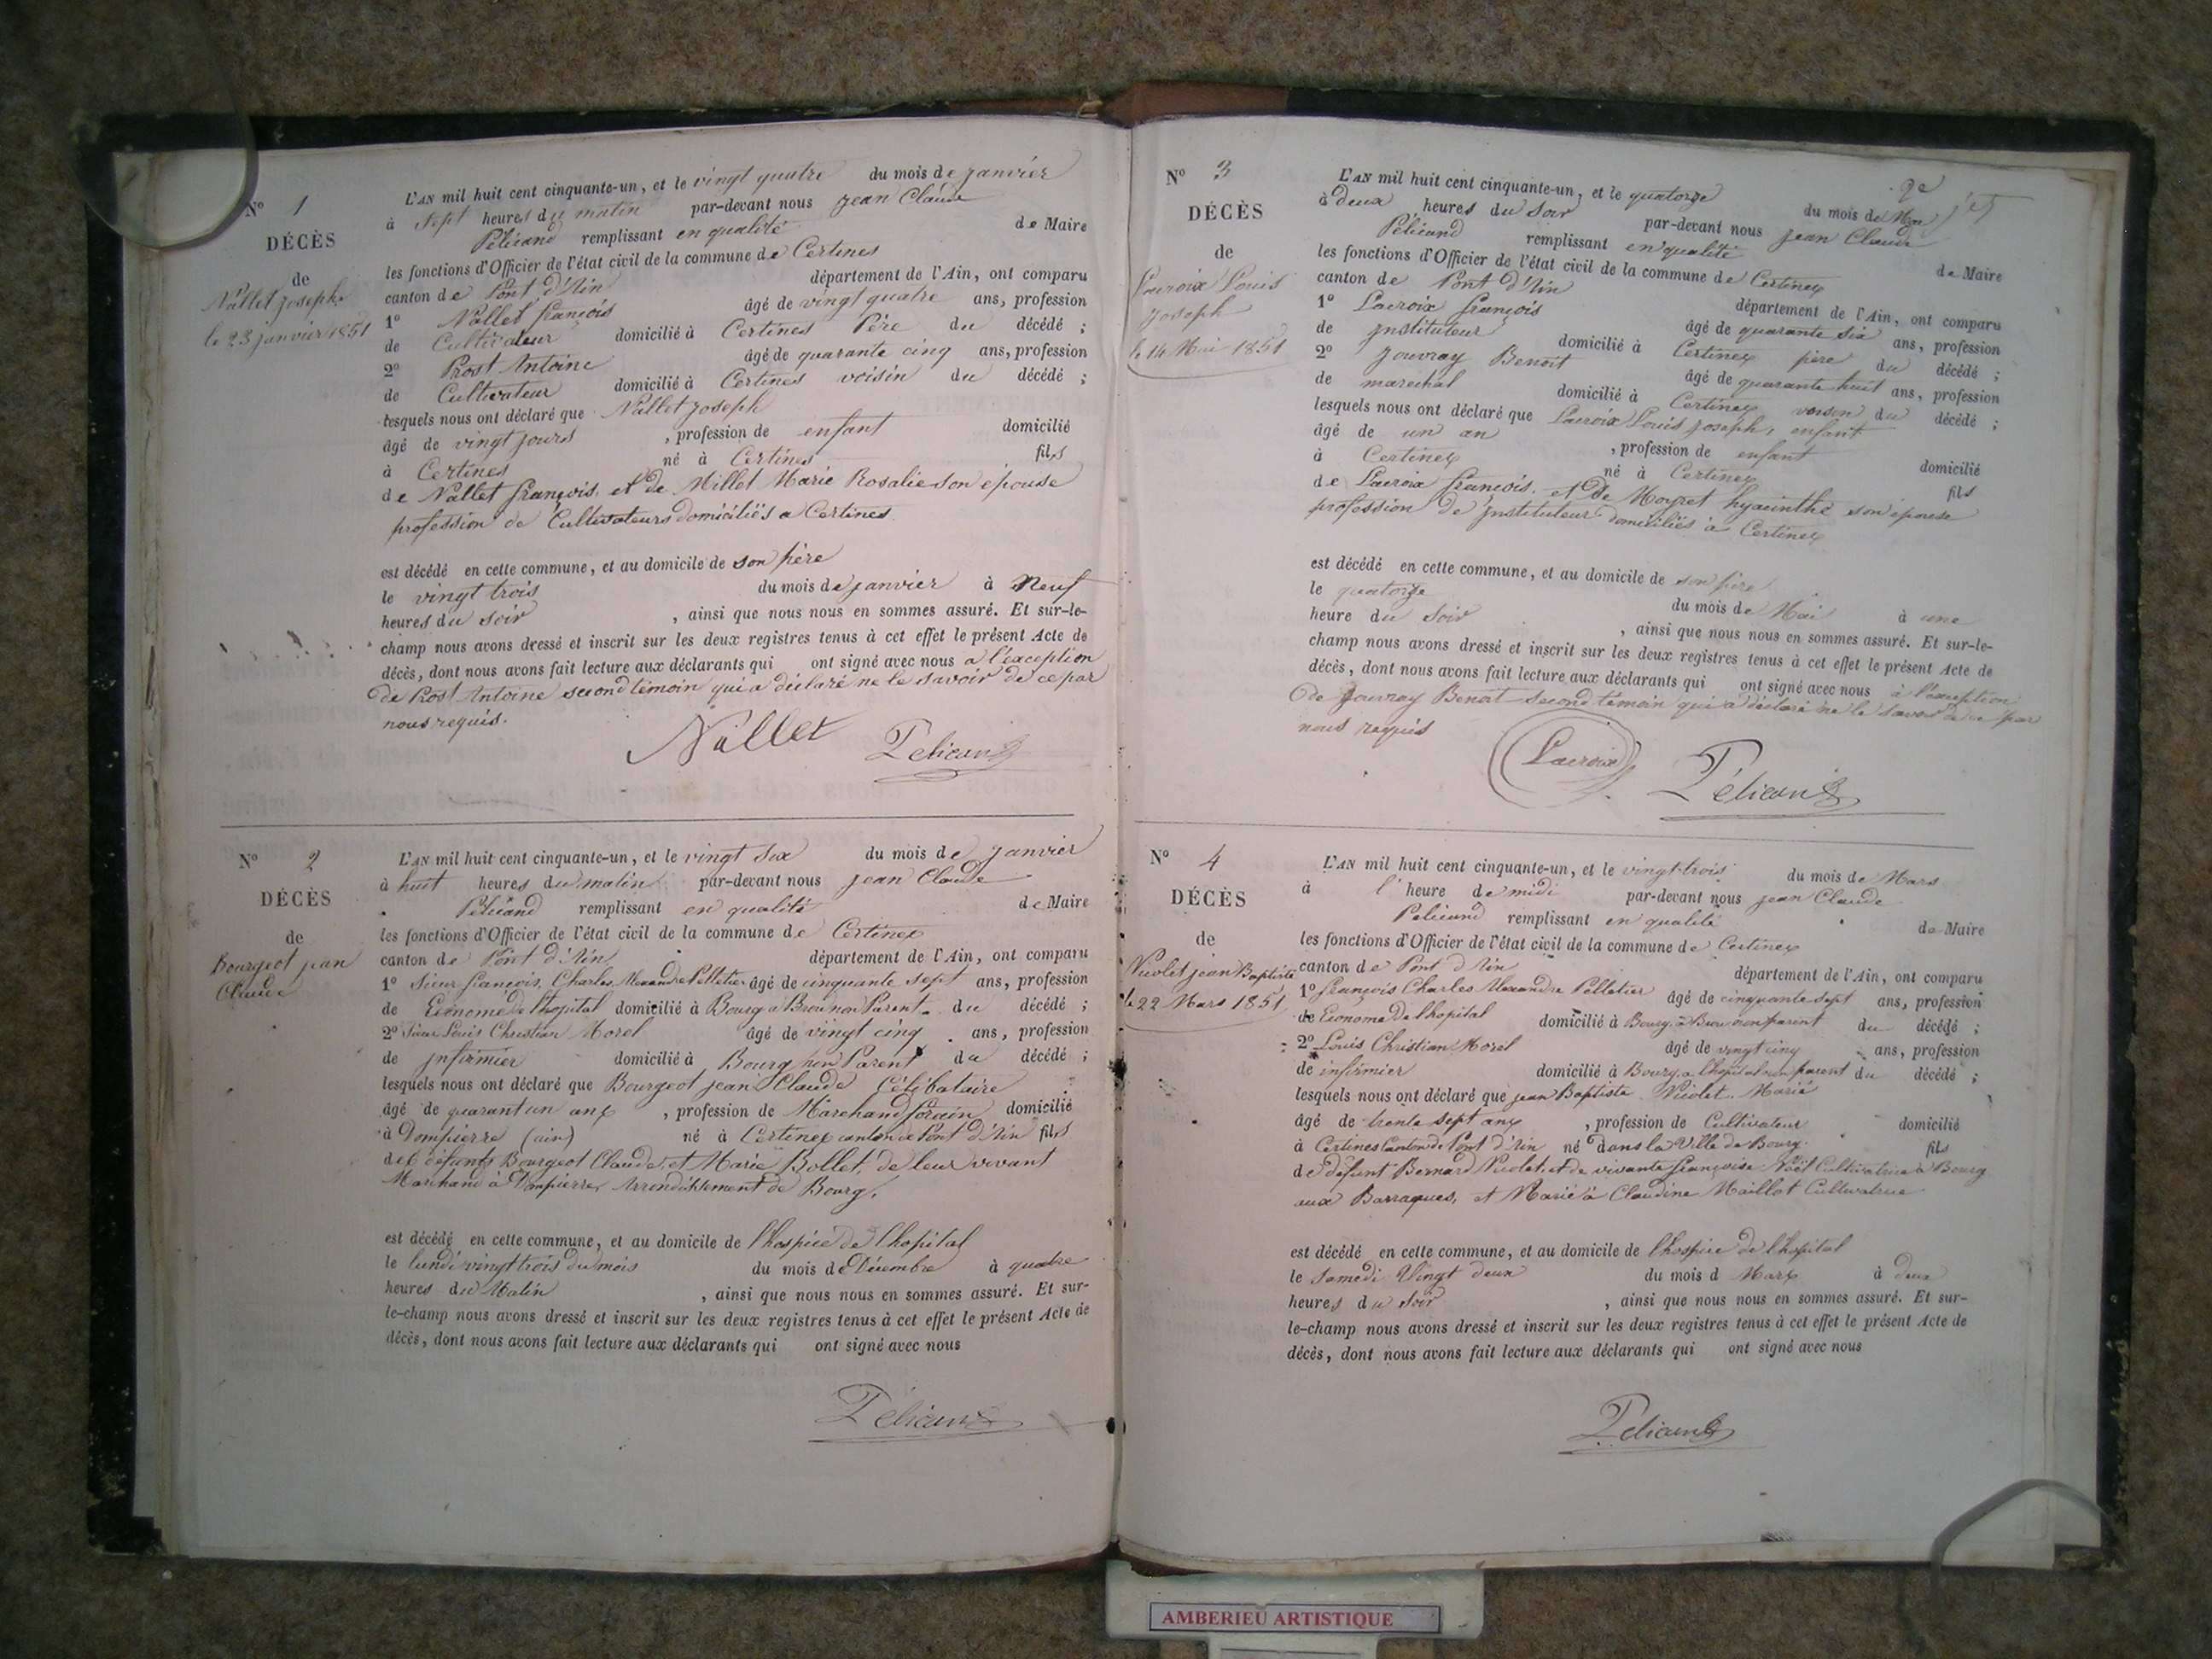 N° 1
DÉCÈS
de
Nallet Joseph
le 23 janvier 1851
L'AN mil huit cent cinquante-un, et le vingt quatre du mois de janvier
à sept heures du matin par-devant nous jean Claude
Pélicand remplissant en qualité de Maire
les fonctions d'Officier de l'état civil de la commune de Certines
canton de Pont d'Ain département de l'Ain, ont comparu
1° Nallet françois âgé de vingt quatre ans, profession
de Cultivateur domicilié à Certines Père du décédé ;
2° Prost Antoine âgé de quarante cinq ans, profession
de Cultivateur domicilié à Certines voisin du décédé ;
lesquels nous ont déclaré que Nallet Joseph
âgé de vingt jours , profession de enfant domicilié
à Certines né à Certines fils
de Nallet françois, et de Millet Marie Rosalie son épouse
profession de Cultivateurs domiciliés a Certines
est décédé en cette commune, et au domicile de son père
le vingt trois du mois de janvier à Neuf
heures du soir , ainsi que nous nous en sommes assuré. Et sur-le-
champ nous avons dressé et inscrit sur les deux registres tenus à cet effet le présent Acte de
décès, dont nous avons fait lecture aux déclarants qui ont signé avec nous a l'exception
de Prost Antoine second témoin qui a déclaré ne le savoir de ce par
nous requis.
Nallet Pelicand
N° 2
DÉCÈS
de
Bourgeot jean
Claude
L'AN mil huit cent cinquante-un, et le vingt six du mois de janvier
à huit heures du matin par-devant nous jean Claude
Pélicand remplissant en qualité de Maire
les fonctions d'Officier de l'état civil de la commune de Certines
canton de Pont d'Ain département de l'Ain, ont comparu
1° Sieur françois, Charles, Alexandre Pelletier âgé de cinquante sept ans, profession
de Econome de l'hopital domicilié à Bourg a Brou non Parent du décédé ;
2° Sieur Louis Christian Morel âgé de vingt cinq ans, profession
de infirmier domicilié à Bourg non Parent du décédé ;
lesquels nous ont déclaré que Bourgeot jean Claude Célibataire
âgé de quarant un ans , profession de Marchand forain domicilié
à Dompierre (ain) né à Certines canton de Pont d'Ain fils
des défunts Bourgeot Claude, et Marie Bollet, de leur vivant
Marchand à Dompierre, Arrondissement de Bourg,
est décédé en cette commune, et au domicile de l'hospice de l'hopital
le lundi vingt trois du mois du mois de Décembre à quatre
heures du Matin , ainsi que nous nous en sommes assuré. Et sur-
le-champ nous avons dressé et inscrit sur les deux registres tenus à cet effet le présent Acte de
décès, dont nous avons fait lecture aux déclarants qui ont signé avec nous
Pélicand
N° 3
DÉCÈS
de
Lacroix Louis
Joseph
le 14 Mai 1851
L'AN mil huit cent cinquante-un, et le quatorze du mois de Mai
à deux heures du Soir par-devant nous jean Claude
Pélicand remplissant en qualité de Maire
les fonctions d'Officier de l'état civil de la commune de Certines
canton de Pont d'Ain département de l'Ain, ont comparu
1° Lacroix françois âgé de quarante six ans, profession
de jnstituteur domicilié à Certines père du décédé ;
2° Jouvray Benoit âgé de quarante huit ans, profession
de marechal domicilié à Certines voisin du décédé ;
lesquels nous ont déclaré que Lacroix Louis joseph, enfant
âgé de un an , profession de enfant domicilié
à Certines né à Certines fils
de Lacroix françois, et de hyacinthe son épouse
profession de jnstituteur domiciliés à Certines
est décédé en cette commune, et au domicile de son père
le quatorze du mois de Mai à une
heure du Soir , ainsi que nous nous en sommes assuré. Et sur-le-
champ nous avons dressé et inscrit sur les deux registres tenus à cet effet le présent Acte de
décès, dont nous avons fait lecture aux déclarants qui ont signé avec nous à l'exception
de Jouvray Benoit second témoin qui a déclaré ne le savoir de ce par
nous requis
Lacroix Pélicand
N° 4
DÉCÈS
de
Nicolet jean Baptiste
le 22 Mars 1851
L'AN mil huit cent cinquante-un, et le vingt-trois du mois de Mars
à l'heure de midi par-devant nous jean Claude
Pelicand remplissant en qualité de Maire
les fonctions d'Officier de l'état civil de la commune de Certines
canton de Pont d'Ain département de l'Ain, ont comparu
1° françois Charles Alexandre Pelletier âgé de cinquante sept ans, profession
de Econome de l'hopital domicilié à Bourg, a Brou non parent du décédé ;
2° Louis Christian Morel âgé de vingt cinq ans, profession
de infirmier domicilié à Bourg, a l'hopital non parent du décédé ;
lesquels nous ont déclaré que jean Baptiste Nicolet. Marié
âgé de trente sept ans , profession de Cultivateur domicilié
à Certines Canton de Pont d'Ain né dans la Ville de Bourg. fils
de défunt Bernard Nicolet, et de vivante françoise Cultivatrice à Bourg
aux Barraques, et Marié à Claudine Maillot Cultivatrice
est décédé en cette commune, et au domicile de l'hospice de l'hopital
le Samedi Vingt deux du mois d Mars à deux
heures du Soir , ainsi que nous nous en sommes assuré. Et sur-
le-champ nous avons dressé et inscrit sur les deux registres tenus à cet effet le présent Acte de
décès, dont nous avons fait lecture aux déclarants qui ont signé avec nous
Pelicand
AMBERIEU ARTISTIQUE